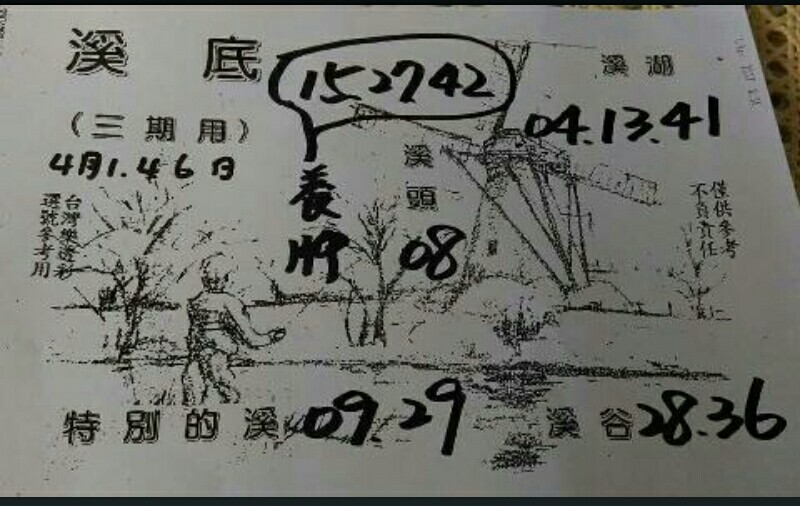 溪底
152742
溪湖
(三期用)
04.13.41
4月1.4 6日
溪頭
08
養牌
台灣樂透彩
選號參考用
僅供參考
不負責任
特別的溪 09.29
溪谷 28.36